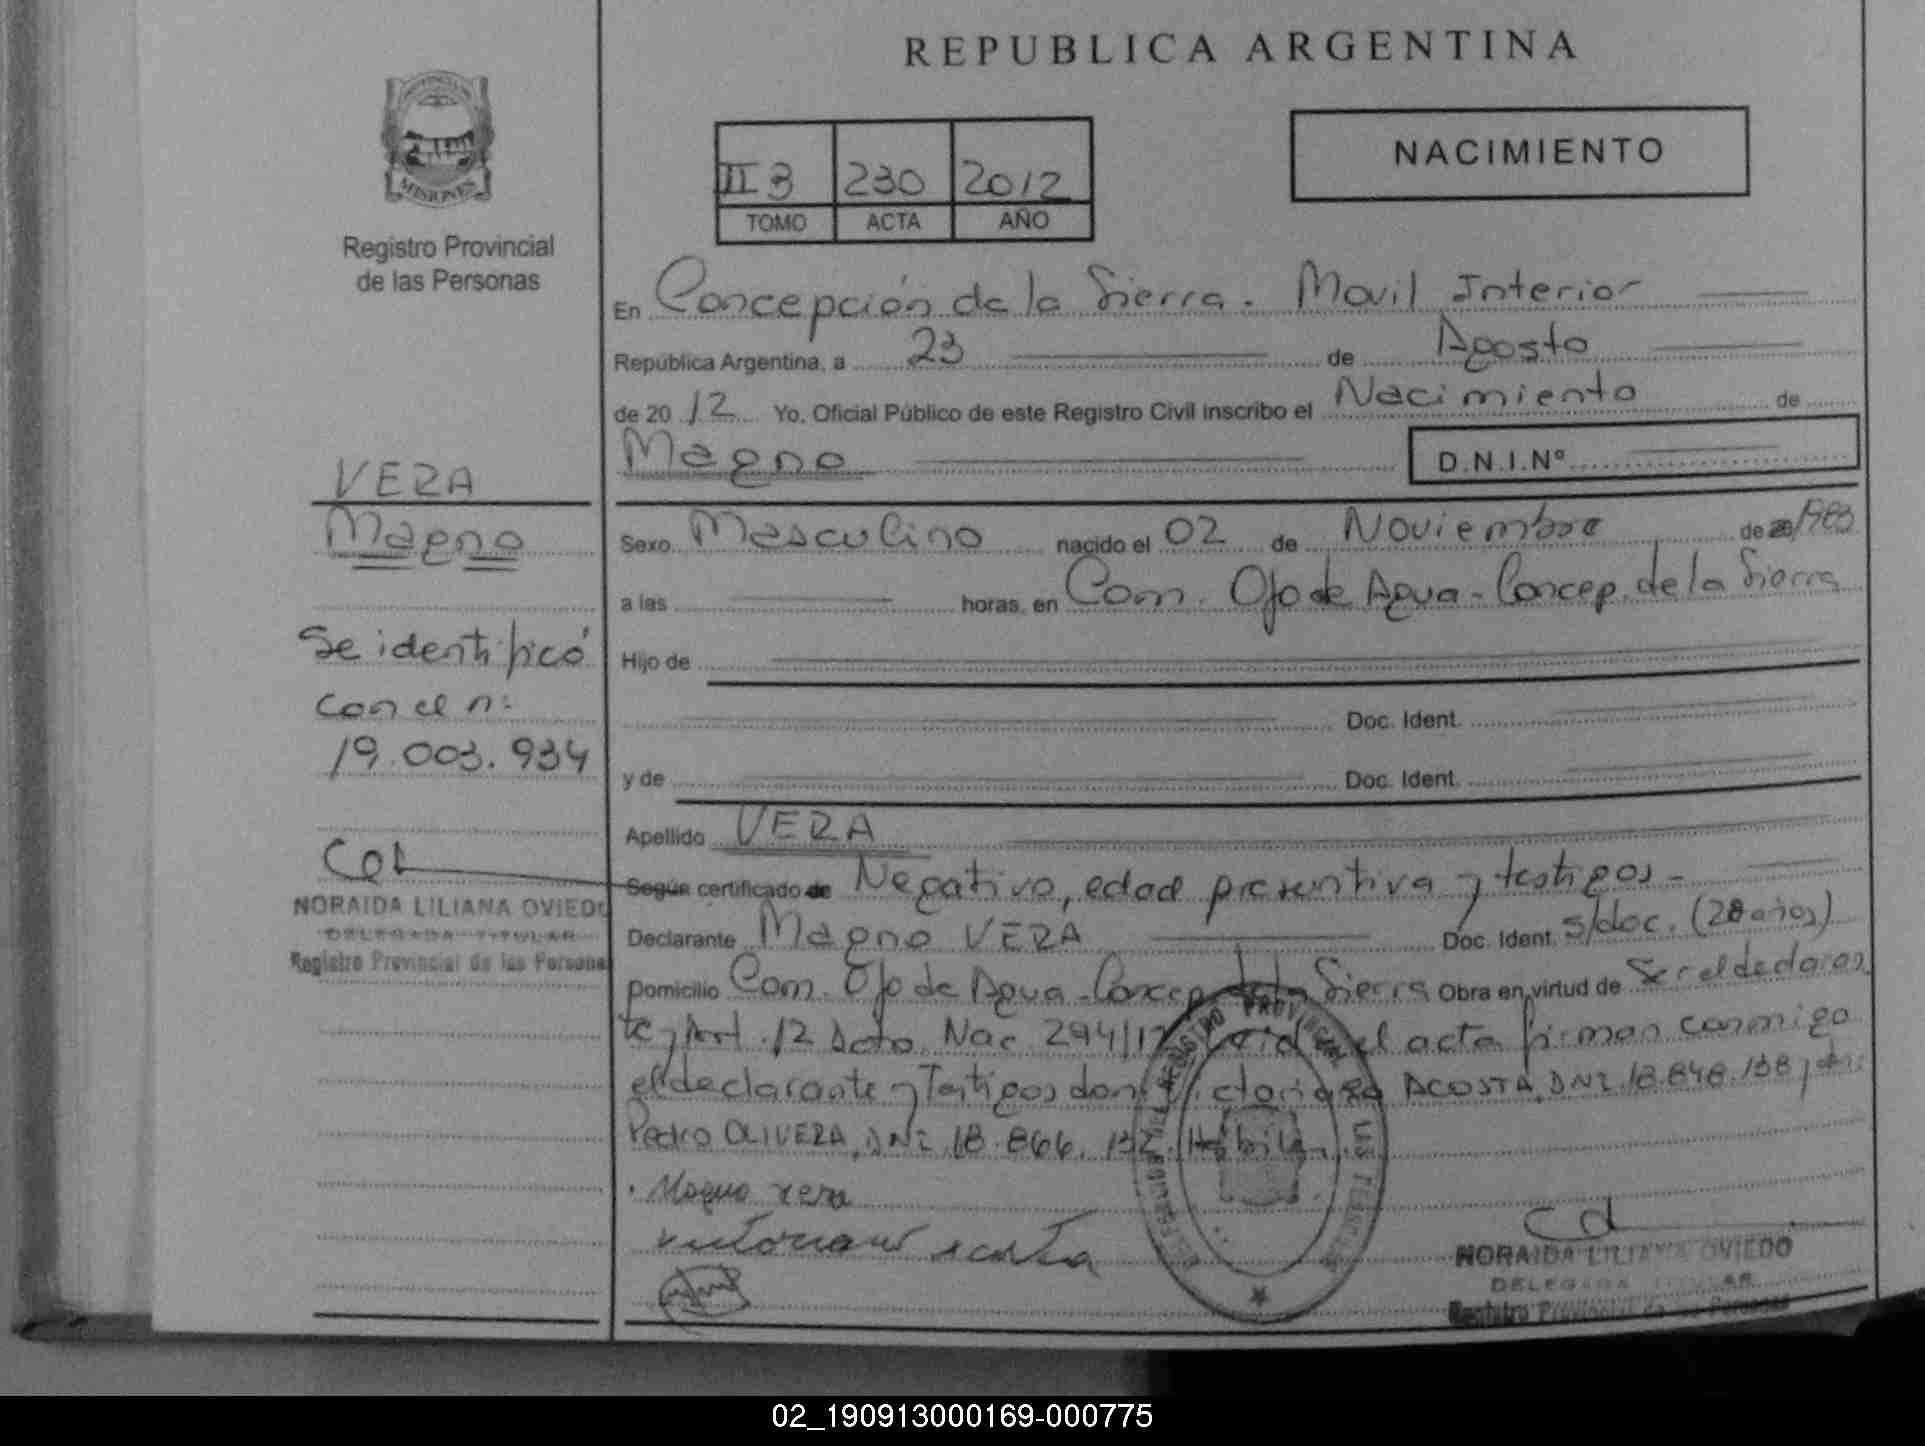 REPUBLICA ARGENTINA
PROVINCIA DE
MISIONES
Registro Provincial
de las Personas
II 3 230 2012
TOMO ACTA AÑO
NACIMIENTO
En Concepción de la Sierra. Movil Interior
República Argentina, a 23 de Agosto
de 20 12 Yo, Oficial Público de este Registro Civil inscribo el Nacimiento de
Magno D.N.I.Nº
VERA
Magno
Se identificó
con el n:
19.003.934
NORAIDA LILIANA OVIEDO
DELEGADA TITULAR
Registro Provincial de las Persona
Sexo Masculino nacido el 02 de Noviembre de 20 1983
a las horas, en Com. Ojo de Agua - Concep. de la Sierra
Hijo de
Doc. Ident.
y de Doc. Ident.
Apellido VERA
Según certificado de Negativo, edad presuntiva y testigos -
Declarante Magno VERA Doc. Ident. s/doc. (28 años)
Domicilio Com. Ojo de Agua - Concep de la Sierra Obra en virtud de Ser el declaran
te y Art. 12 Dcto. Nac 294/12 Leida el acta firman conmigo
el declarante y Testigos don Victoriano ACOSTA, DNI 18.848.138 y don:
Pedro OLIVERA, DNI 18.866.132. Hábiles.
Magno vera
victoriano acosta
REGISTRO PROVINCIAL DE LAS PERSONAS
NORAIDA LILIANA OVIEDO
DELEGADA TITULAR
Registro Provincial de las Personas
02_190913000169-000775